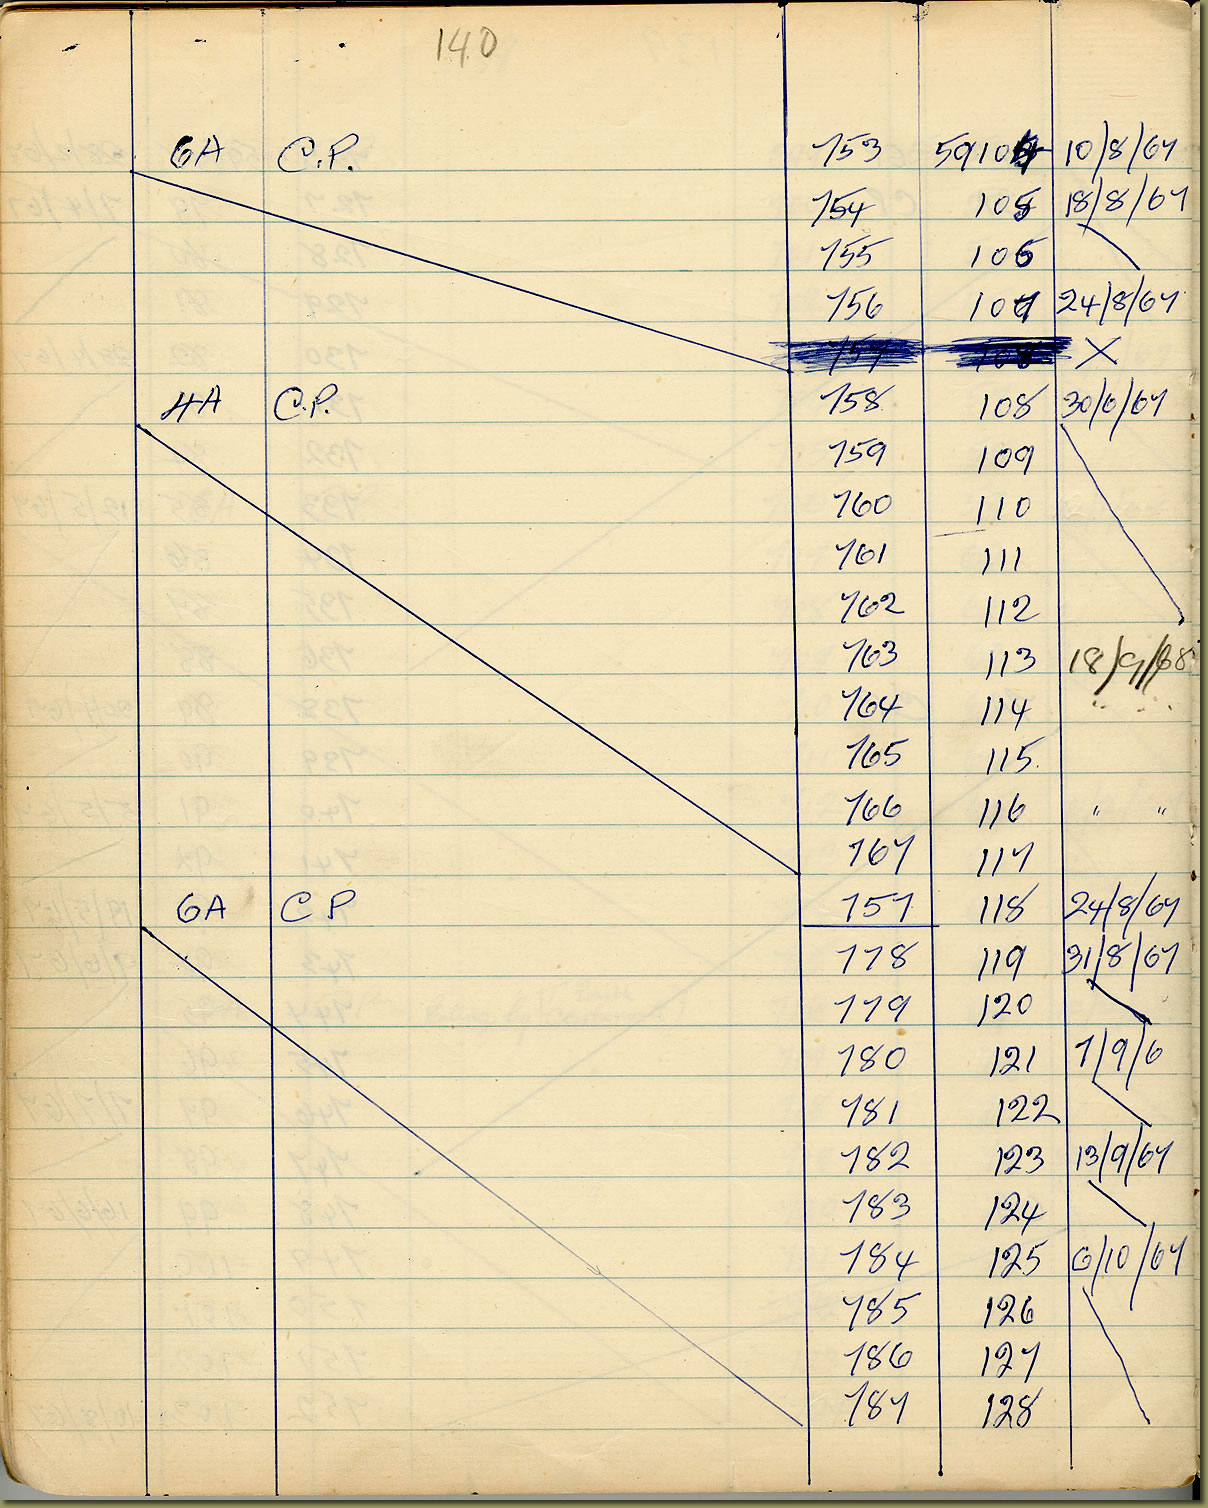 140
6A C.P. 753 59104 10/8/67
754 105 18/8/67
755 106
756 107 24/8/67
757 108 X
4A C.P. 758 108 30/6/67
759 109
760 110
761 111
762 112
763 113 18/9/68
764 114 " "
765 115
766 116 " "
767 117
6A C P 757 118 24/8/67
778 119 31/8/67
779 120
780 121 7/9/6
781 122
782 123 13/9/67
783 124
784 125 6/10/67
785 126
786 127
787 128